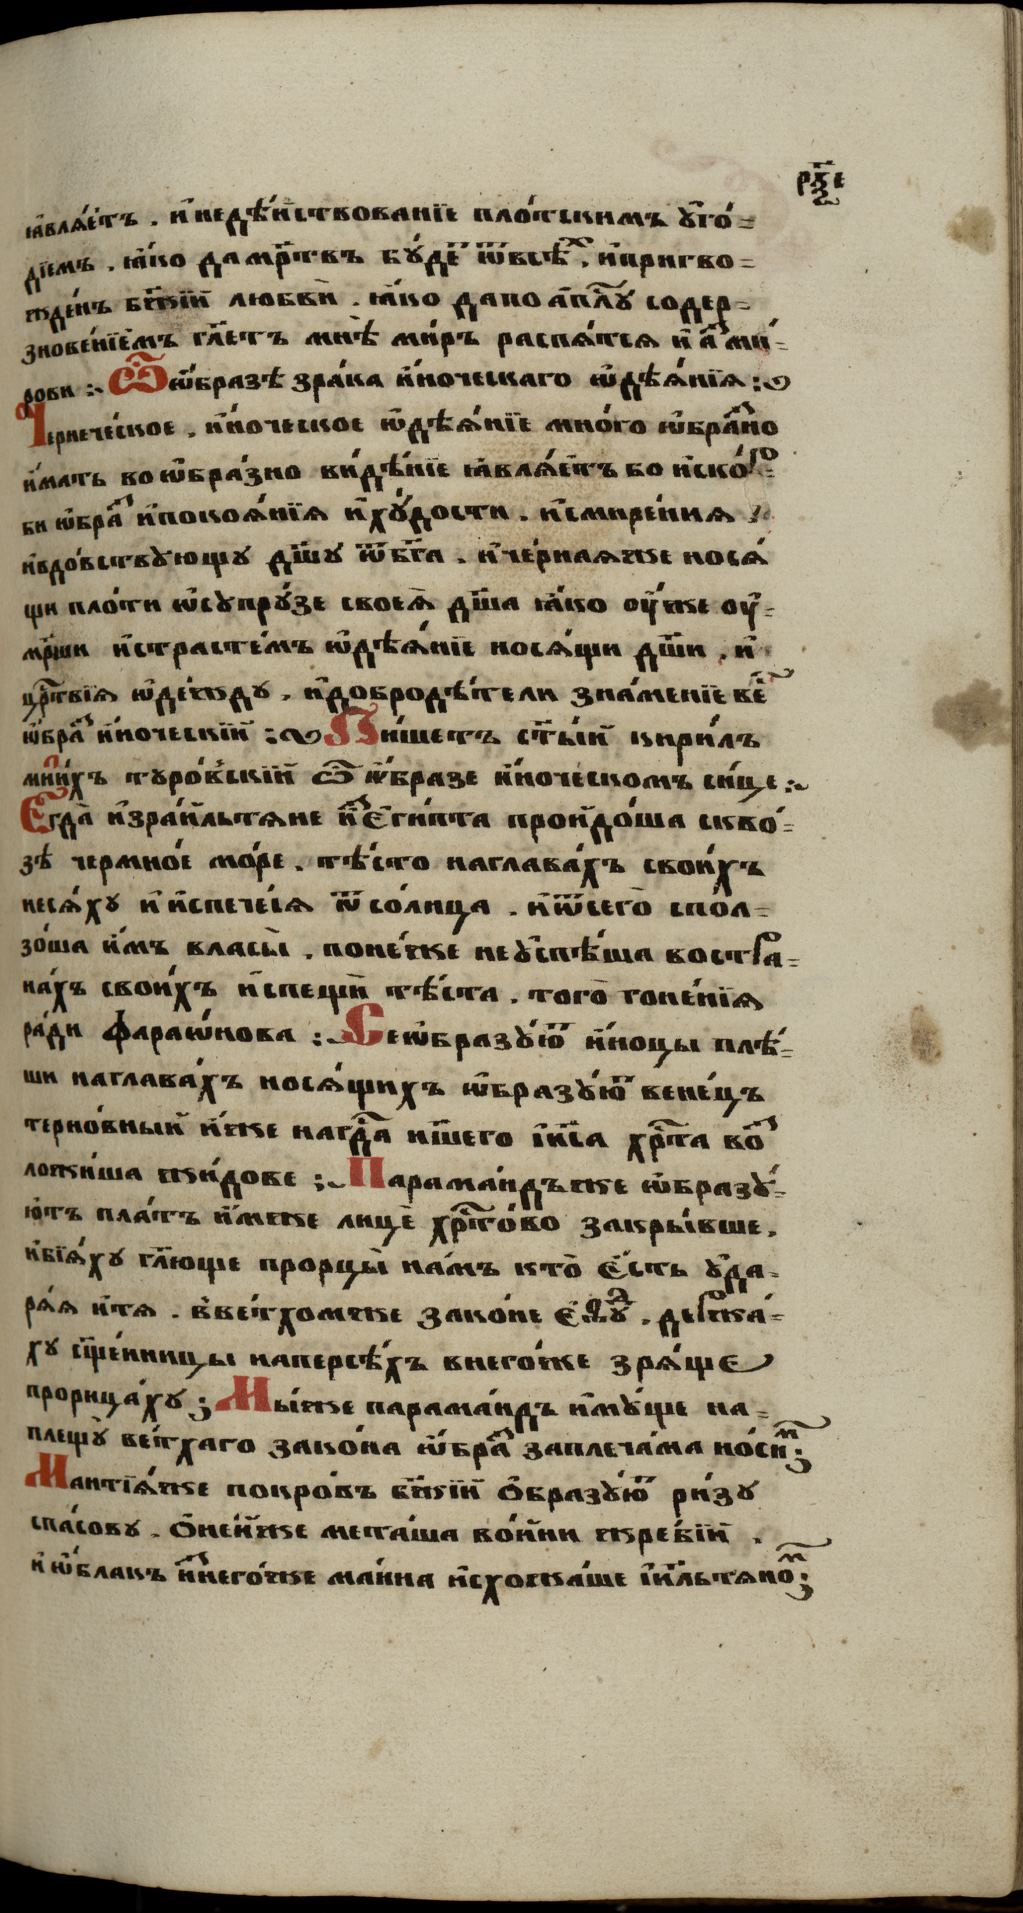 рѯ҃е
ꙗ҆влѧ́етъ . и҆недѣ́йствованїе пло́тскимъ ᲂу҆го́-
дїемъ . ꙗ҆́ко дамр҃твъ бу́де ѿвсѣ́ . и҆пригво-
жде́нъ бж҃їй любви̂ . ꙗ҆́ко дапо а҆пⷭ҇лу содер-
знове́нїемъ гл҃етъ мнѣ̀ ми́ръ распѧ́тсѧ и҆ а҆́ ми́-
рови : Ѽ ѡ҆́бразѣ зра́ка и҆́ноческаго ѡ҆дѣѧ́нїѧ :
Черне́ческое . и҆́ноческое ѡ҆дѣѧ́нїе мно́го ѡ҆бра́но
и҆́мать воѡ҆бра́зно ви́дѣнїе ꙗ҆влѧ́етъ бо и҆ско́р-
би ѡ҆́браꙁ и҆покоѧ́нїѧ и҆ху́дости . и҆смире́нїѧ
и҆вдо́вствующу дш҃у ѿбг҃а . и҆че́рнаѧже носѧ́
щи пло́ти ѡ҆супру́зе своеѧ̀ дш҃а ꙗ҆́ко ᲂу҆́же ᲂу҆-
мр҃ши и҆страсте́мъ ѡ҆дѣѧ́нїе носѧ́щи дш҃и . и҆
црⷭ҇твїѧ ѡ҆де́жду . и҆добродѣ́тели зна́менїе ве́
ѡ҆́браꙁ и҆́ноческїй : Пи́шетъ ст҃ы́й кири́лъ
мни́хъ ту́ровскїй ѽ ѡ҆́бразе и҆́ноческомъ сице :
Егда̀ и҆зра́ильтѧне иꙁ̾ є҆ги́пта проидо́ша скво́-
зѣ чермно́е мо́ре . тѣ́сто наглава́хъ свои́хъ
несѧ́ху и҆ и҆спече́сѧ ѿ со́лнца . и҆ѿсего̀ спол-
зо́ша и҆́мъ власы̀ . поне́же неᲂу҆спѣ́ша востра-
на́хъ свои́хъ и҆спещѝ тѣ́ста . того̀ гоне́нїѧ
ра́ди фараѡ́нова : Сеѡ҆бразу́ю и҆́ноцы плѣ́-
ши наглава́хъ носѧ́щихъ ѡ҆бразу́ю вене́цъ
терно́вный и҆́же нагдⷭ҇а нш҃его і҆и҃са хрⷭ҇та во-
ложи́ша жи́дове : Парама́ндъже ѡ҆бразу́-
ютъ пла́тъ и҆́мже лицѐ хрⷭ҇то́во закры́вше .
и҆бїѧ́ху гл҃юще прорцы̀ на́мъ кто̀ є҆́сть ᲂу҆да-
рѧ́ѧ и҆тѧ . вве́тхомже зако́не є҆фу́д . держа́-
ху сщ҃е́нницы наперсѣ́хъ внего́же зрѧ́ще
прорица́ху ; Мы́же парама́ндъ и҆му́ще на-
плещу̀ ве́тхаго зако́на ѡ҆́браꙁ заплеча́ма но́сим ;
Мантїѧ́же покро́въ бж҃їй ѻ҆бразу́ю ри́зу
спа́сову . ѻ҆не́йже мета́ша во́ини жре́бїй .
и҆ ѡ҆́блакъ иꙁ̾него́же ма́нна и҆схожа́ше і҆и҃льтѧном ;